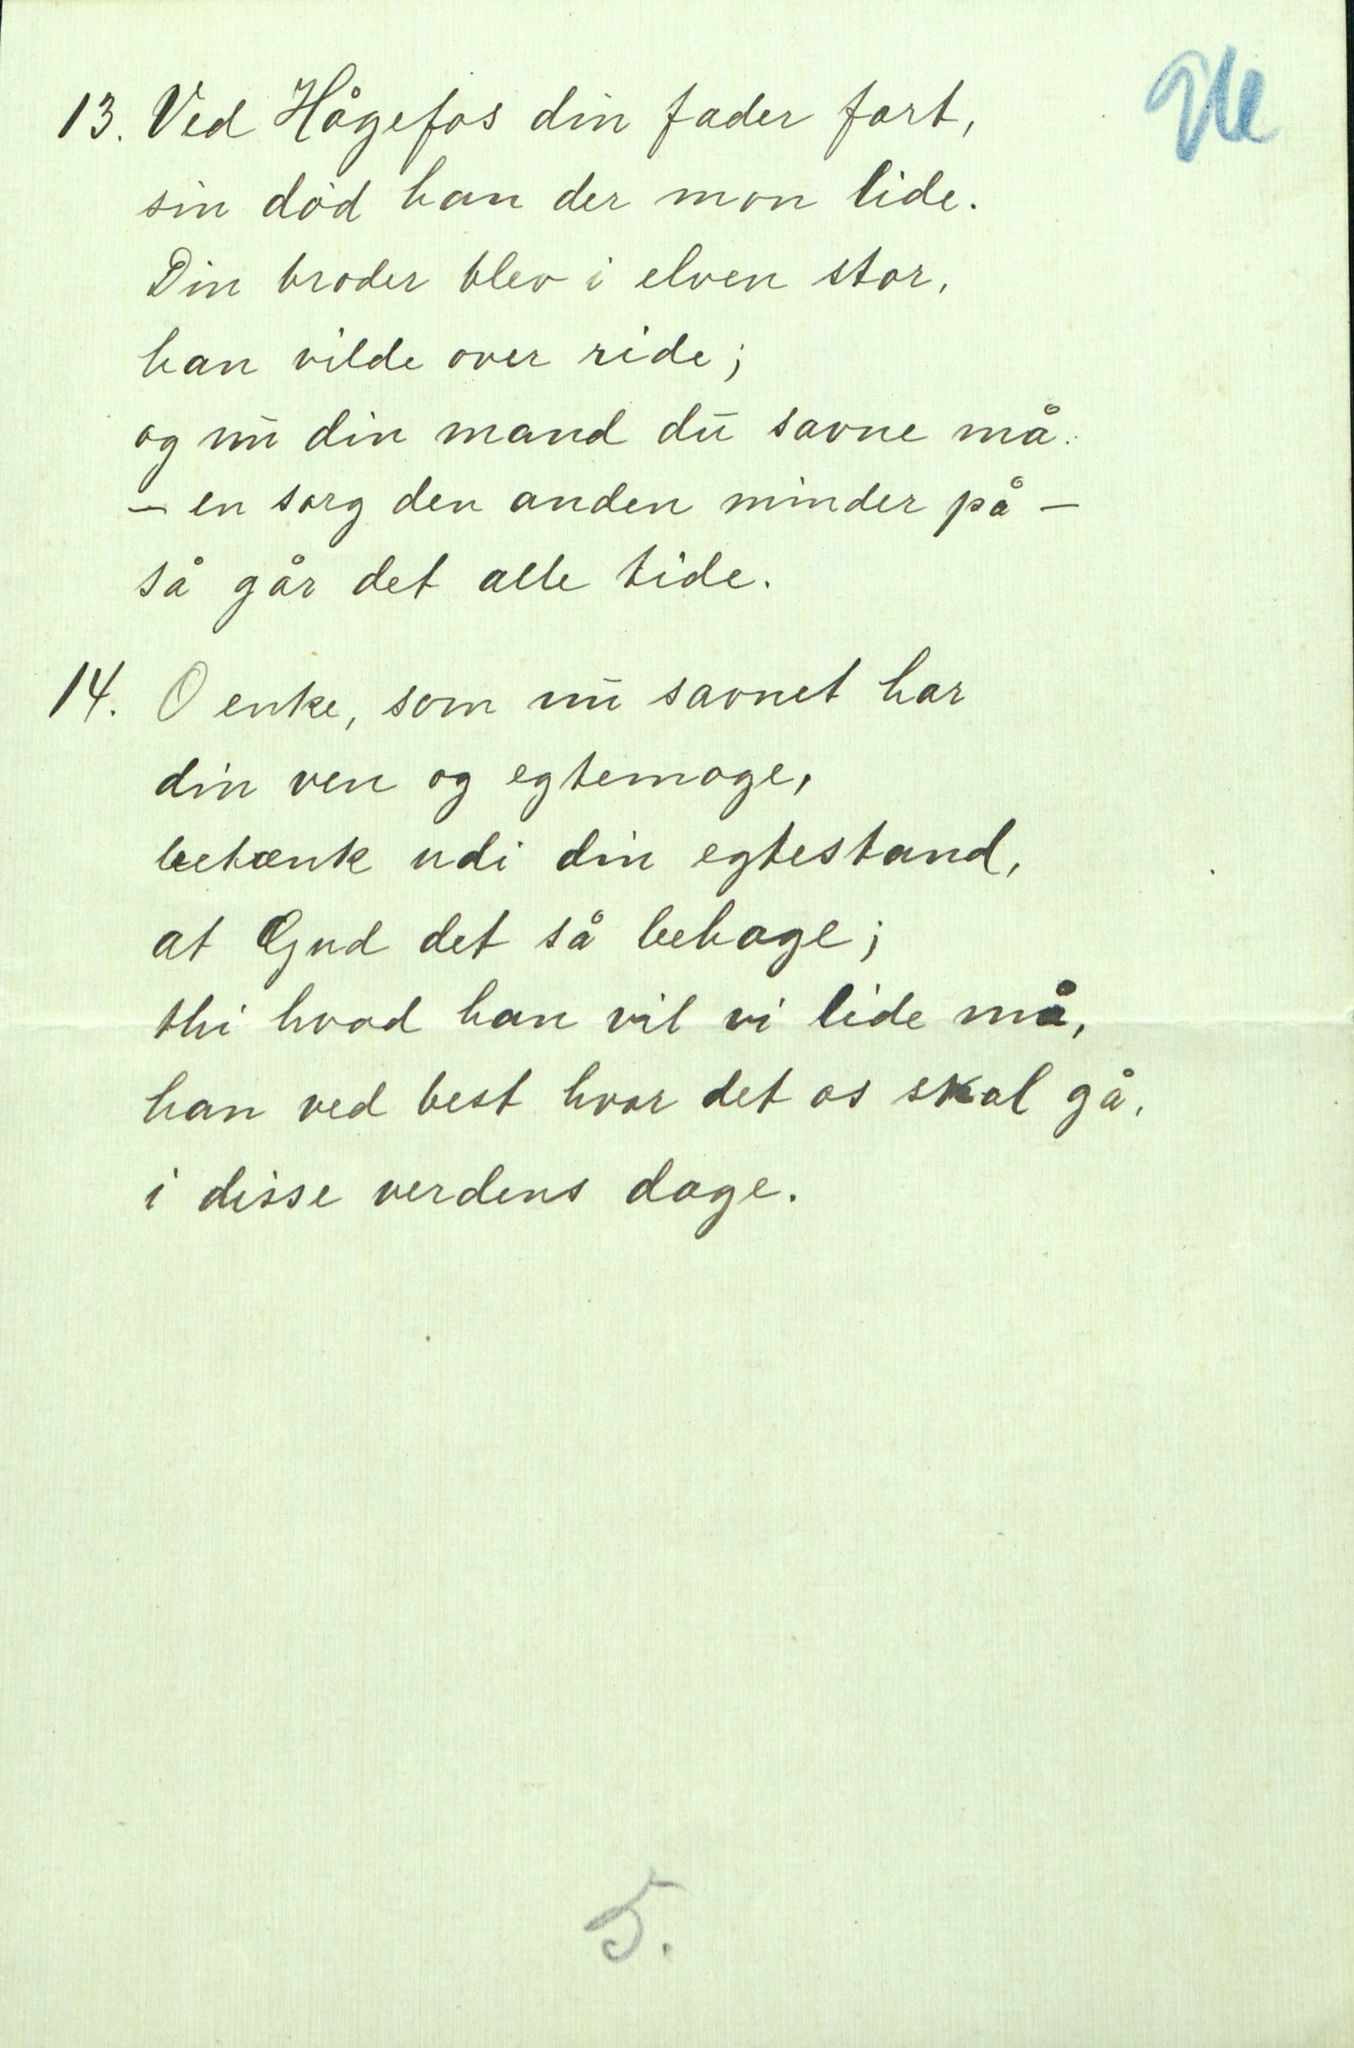 13. Ved Hågefos din fader fort,
sin död han der mon lide.
Din broder blev i elven stor,
han vilde over ride;
og nu din mand du savne må.
— en sorg den anden minder på —
så går det alle tide.
14. O enke, som nu savnet har
din ven og egtemage,
betænk udi din egtestand,
at Gud det så behage;
thi hvad han vil vi lide må,
han ved best hvor det os skal gå,
i disse verdens dage.
5.